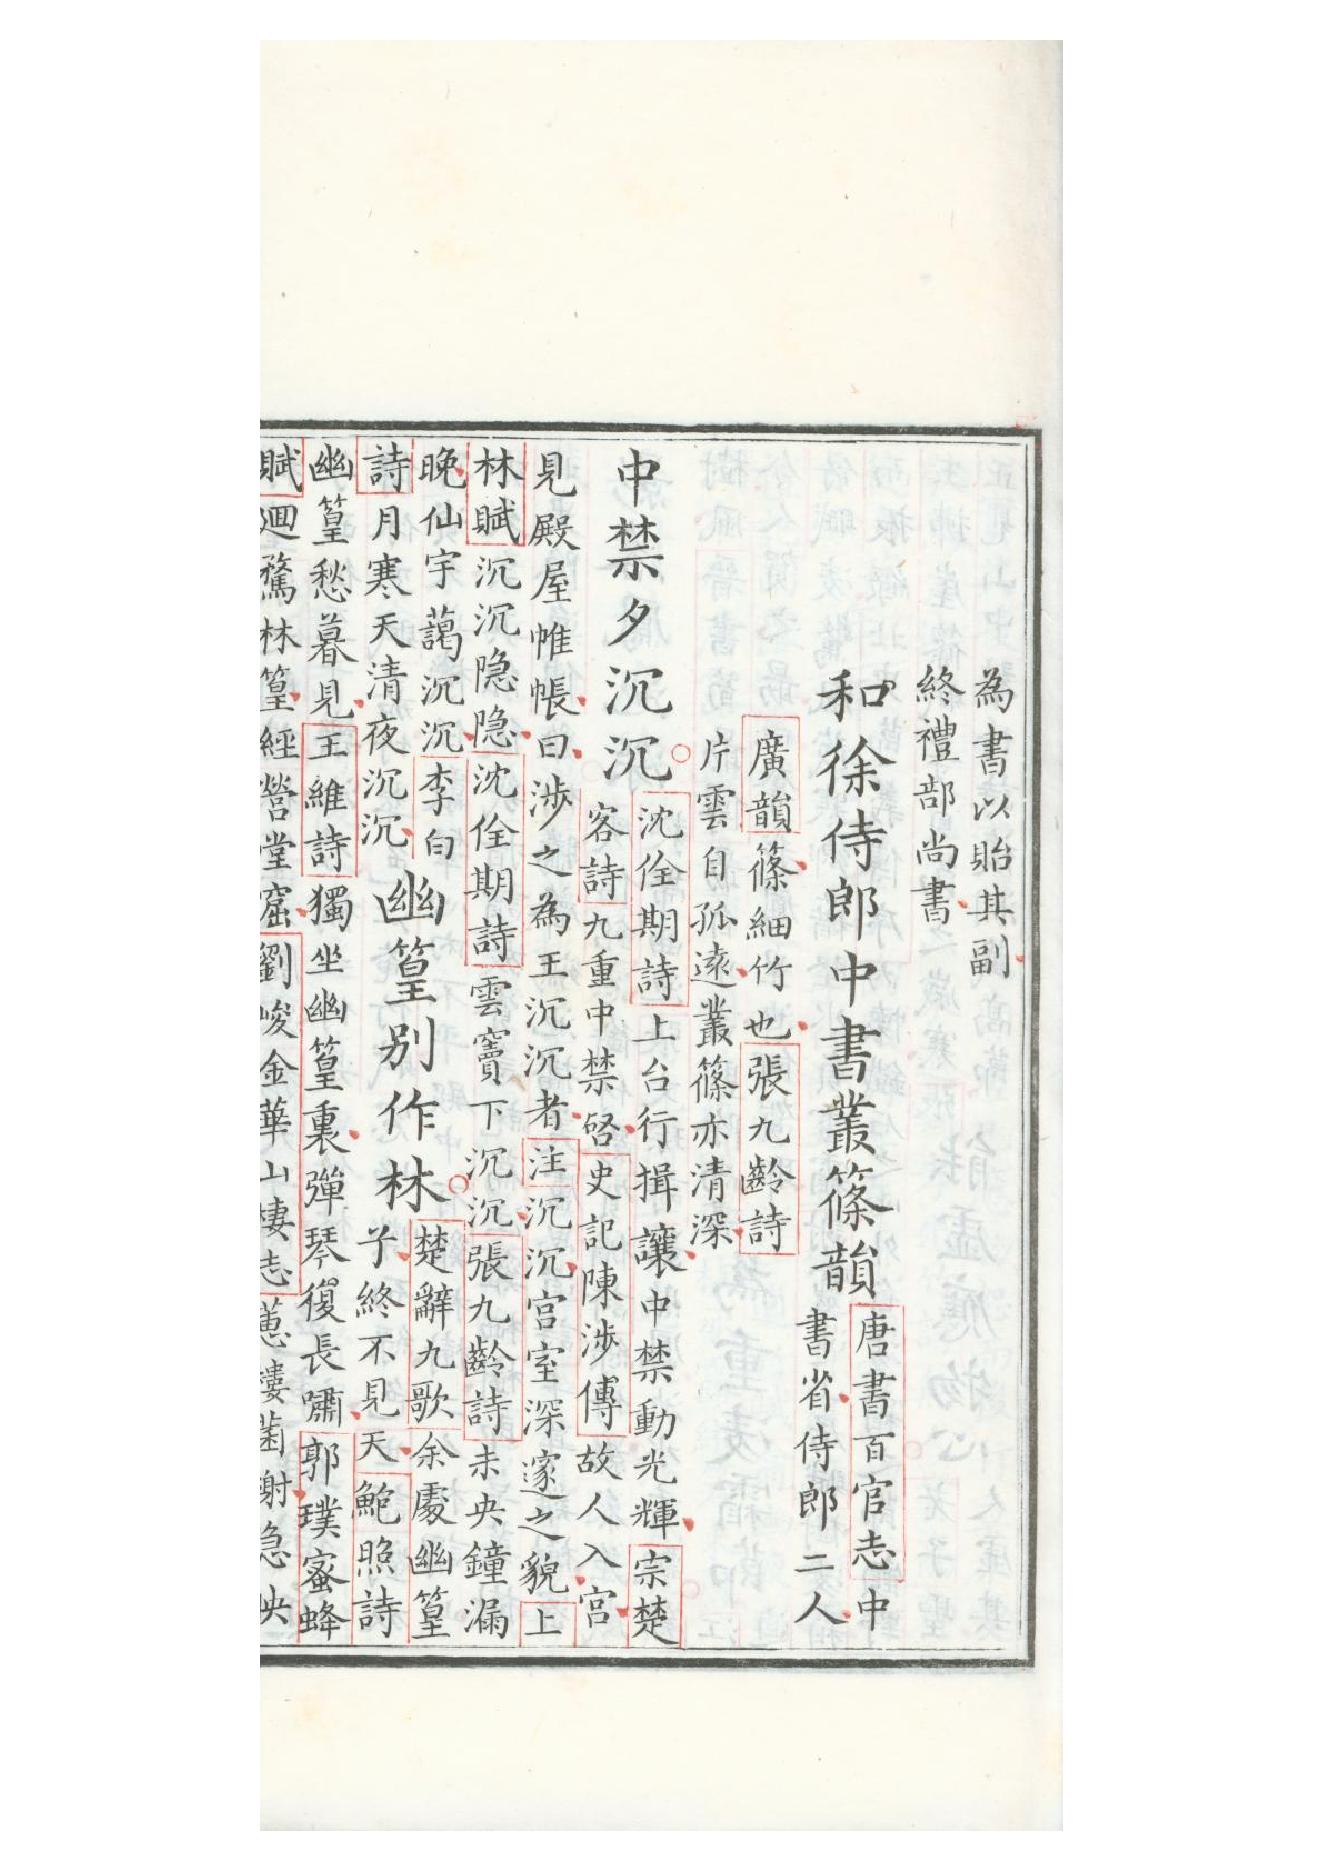 為書以貽其副
終禮部尚書
和徐侍郎中書叢篠韻
唐書百官志中
書省侍郎二人
廣韻篠細竹也張九齡詩
片雲自孤遠叢篠亦清深
中禁夕沉沉
沈佺期詩上台行揖讓中禁動光輝宗楚
客詩九重中禁啓史記陳涉傳故人入宫
見殿屋帷帳曰涉之為王沉沉者注沉沉宫室深邃之貌上
林賦沉沉隐隐沈佺期詩雲竇下沉沉張九齡詩未央鐘漏
晚仙宇藹沉沉李白
詩月寒天清夜沉沉
幽篁别作林
楚辭九歌余處幽篁
子終不見天鮑照詩
幽篁愁暮見王維詩獨坐幽篁裏彈琴復長嘯郭璞蜜蜂
賦迴騖林篁經營堂窟劉峻金華山棲志蔥樓菌謝急峡